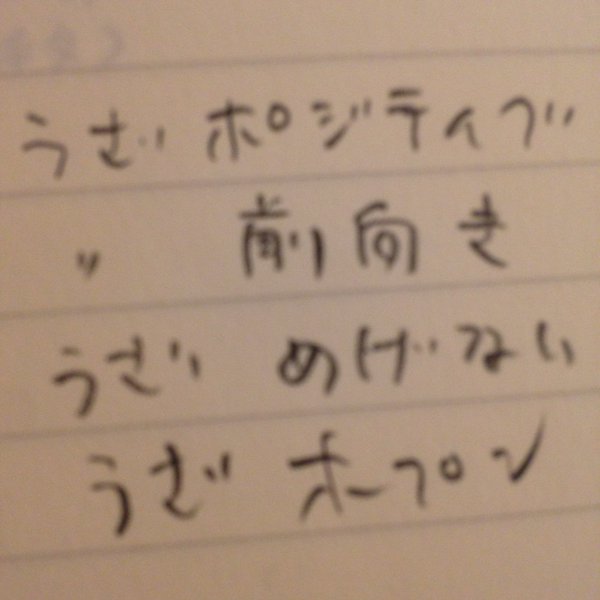 うざ ポジティブ
〃 前向き
うざ めげない
うざ オープン